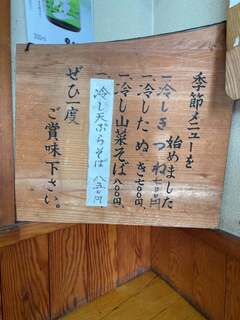 季節メニューを
始めました
一、冷しきつね七〇〇円、
一、冷したぬき七〇〇円、
一、冷し山菜そば八〇〇円、
一、冷し天ぷらそば 八五〇円、
ぜひ一度
ご賞味下さい。